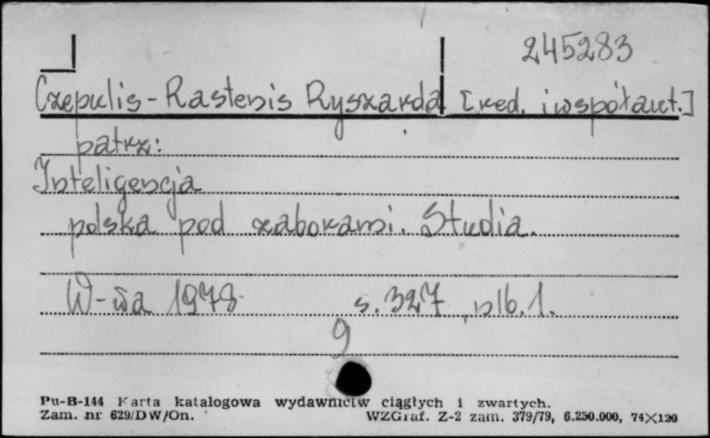 245283
Czepulis-Rastenis Ryszarda [red. i współaut.]
patrz:
Inteligencja
polska pod zaborami. Studia.
W-wa 1978 s. 327, nlb. 1.
9
Pu-B-144 Karta katalogowa wydawnictw ciągłych i zwartych.
Zam. nr 629/DW/On. WZGraf. Z-2 zam. 379/79, 6.250.000, 74×120